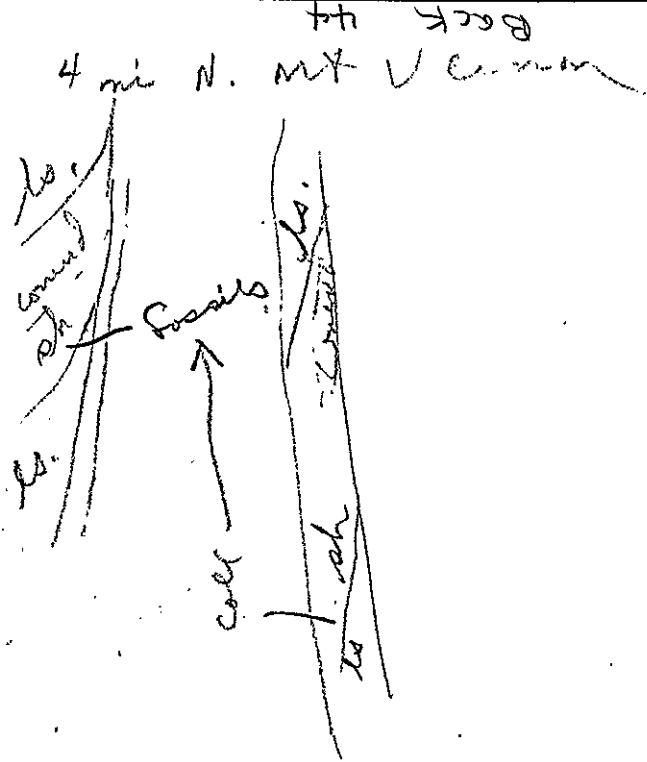 Back 44
4 mi N. Mt Vernon
ls.
covered
sh
ls.
Fossils
Coll
ls.
Covered
sh
ls